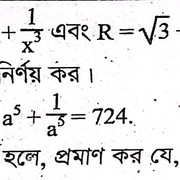 + 1/x³ এবং R = √3 -
নির্ণয় কর ।
a⁵ + 1/a⁵ = 724.
হলে, প্রমাণ কর যে,